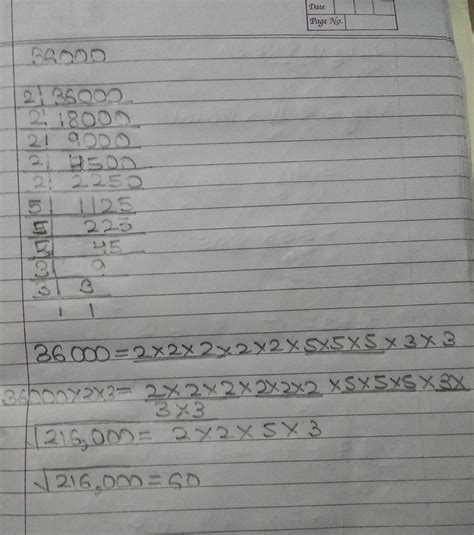 Date
Page No.
36000
2 36000
2 18000
2 9000
2 4500
2 2250
5 1125
5 225
5 45
3 9
3 3
1 1
36000 = 2×2×2×2×2×5×5×5×3×3
36000×2×3= 2×2×2×2×2×2×5×5×5×3×
3×3
√216,000 = 2×2×5×3
√216,000 = 60